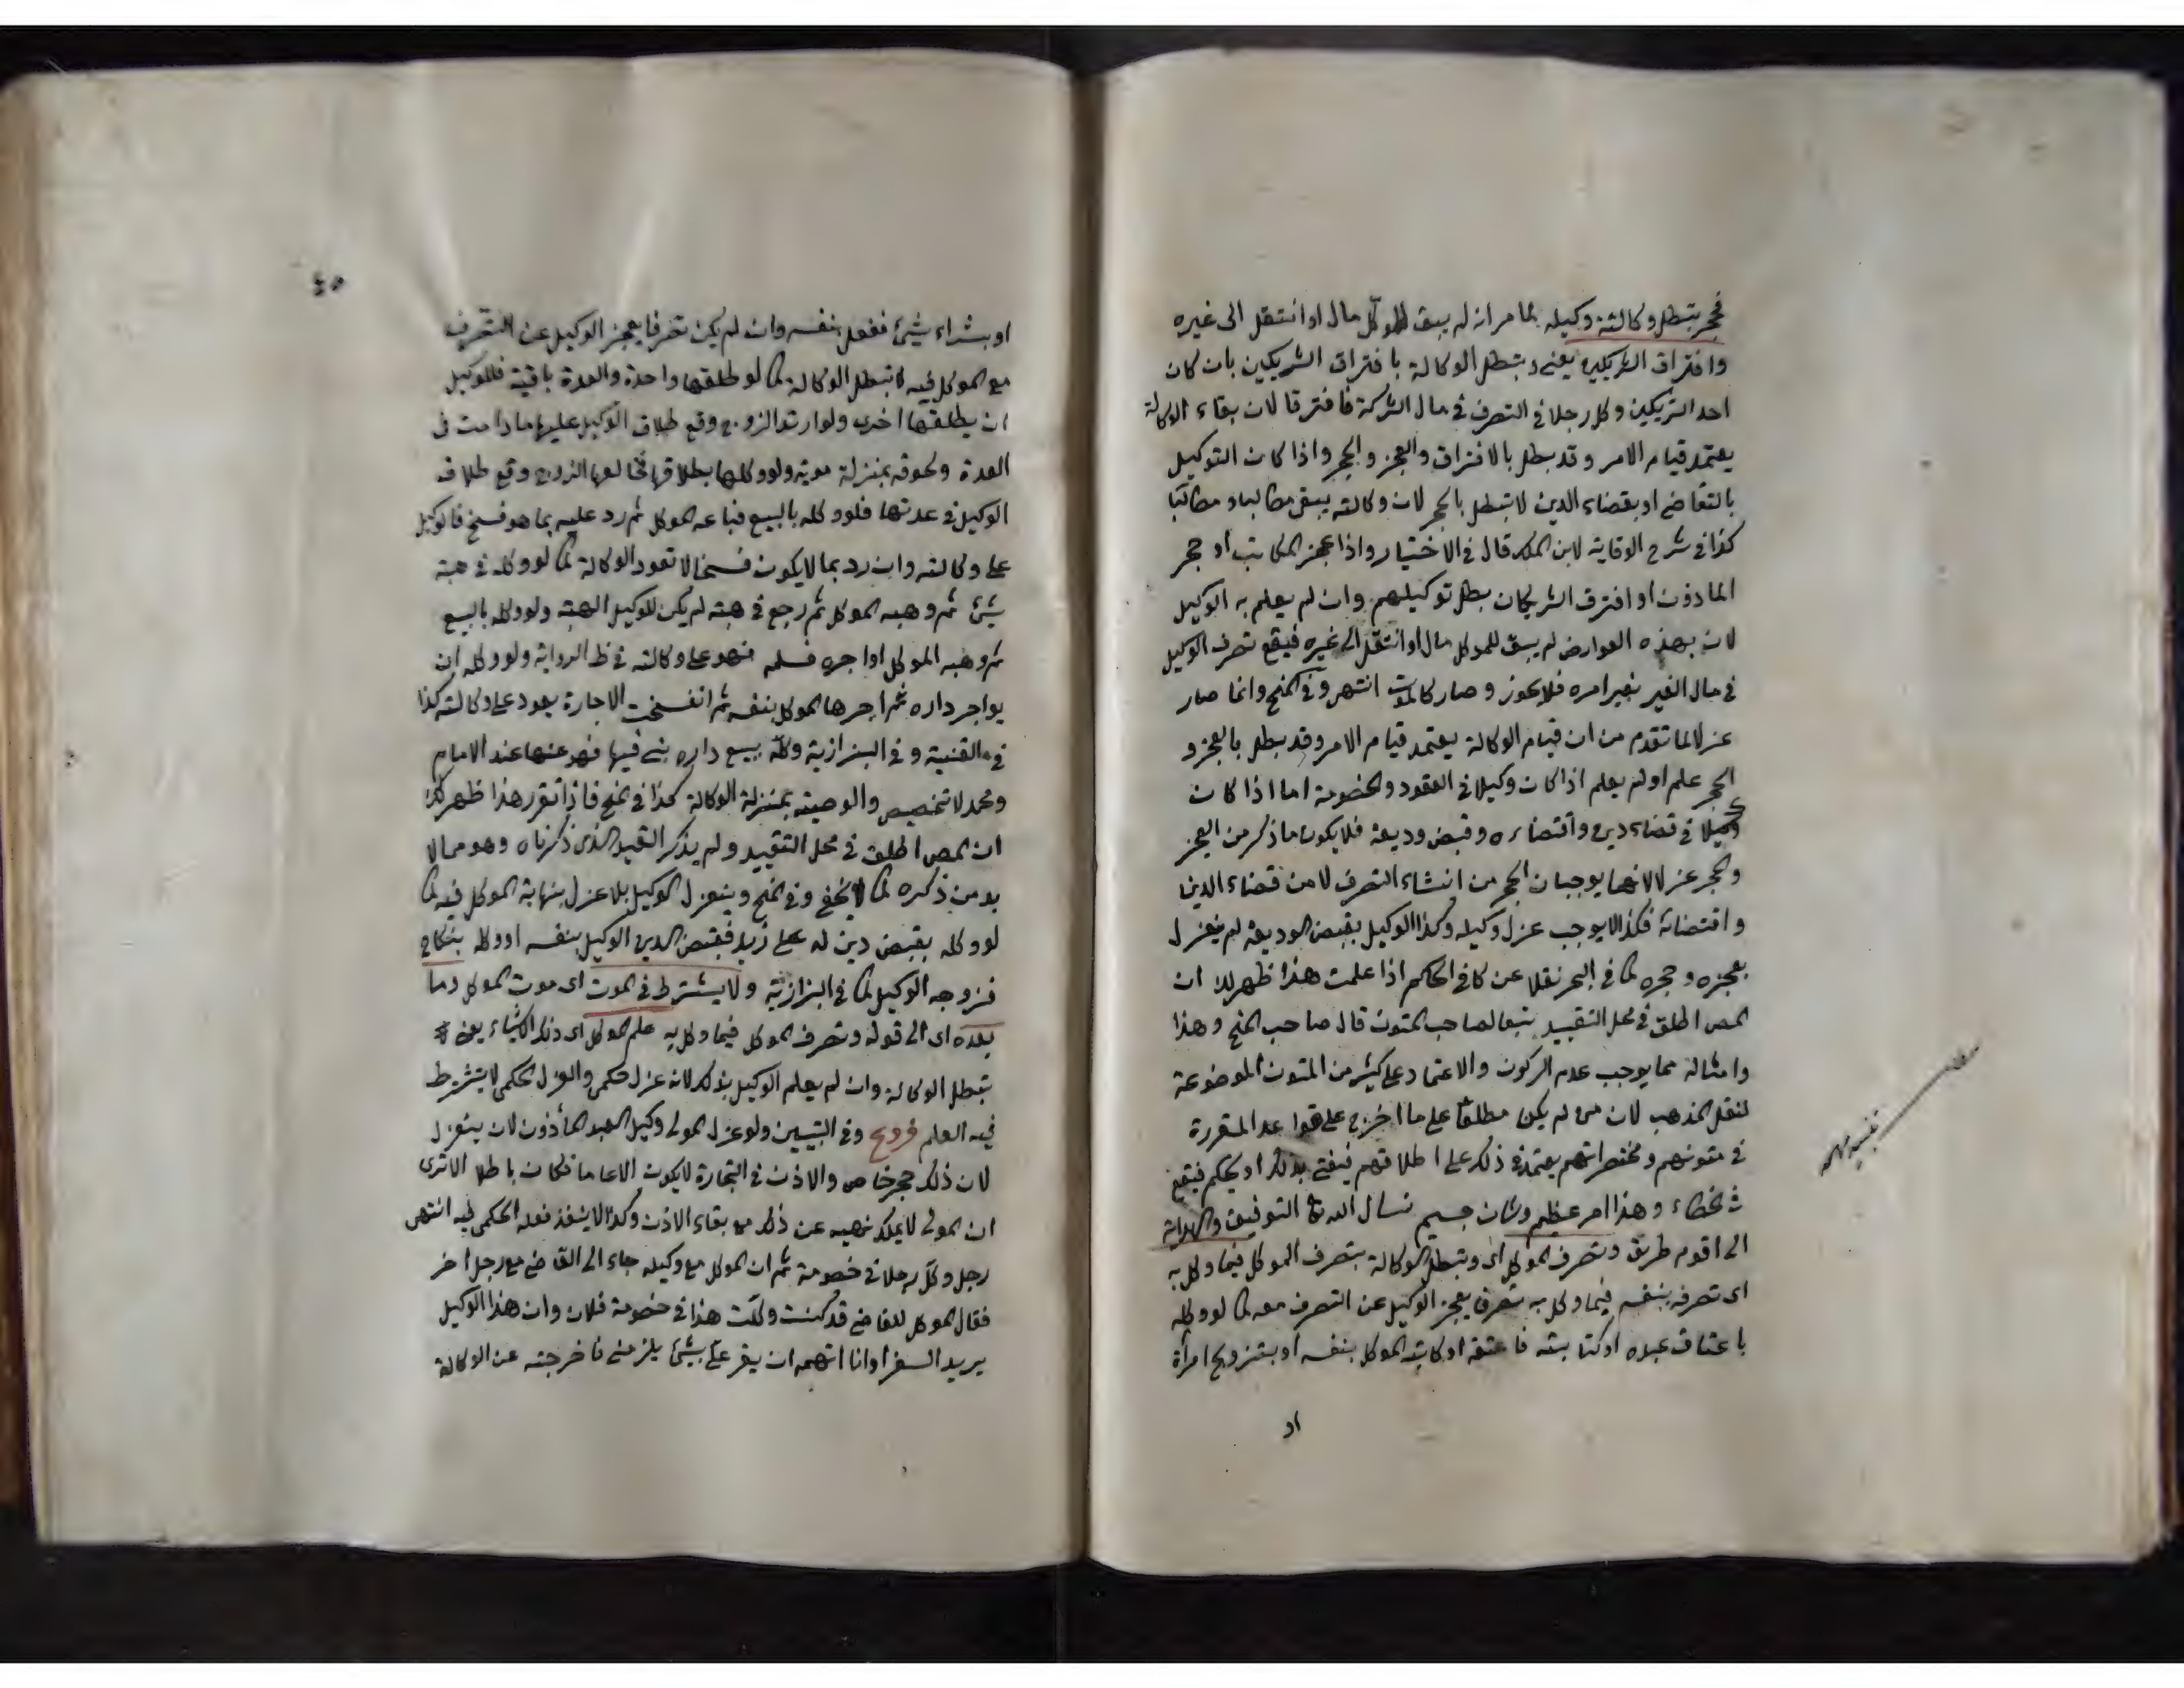 فحجر بتبطل وكالته وكيله لما مر انه لم يبق للموكل مال او انتقل الى غيره
وافتراق الشريكين يعنى وتبطل الوكالة بافتراق الشريكين بان كان
احد الشريكين وكل رجلا في التصرف في مال الشركة فافترقا لان بقاء الوكالة
يعتمد قيام الامر وقد بطل بالافتراق والعجز والحجر واذا كان التوكيل
بالتقاضي او بقضاء الدين لا تبطل بالحجر لان وكالته يبقى مطالبا ومطالبا
كذا في شرح الوقاية لابن الملك قال في الاختيار واذا عجز المكاتب او حجر
الماذون او افترق الشريكان بطل توكيلهم وان لم يعلم به الوكيل
لان بهذه العوارض لم يبق للموكل مال او انتقل الى غيره فيقع تصرف الوكيل
في مال الغير بغير امره فلا يجوز وصار كالموت انتهى وفي المنح وانما صار
عزلا لما تقدم من ان قيام الوكالة يعتمد قيام الامر وقد بطل بالعجز و
الحجر علم او لم يعلم اذا كان وكيلا في العقود والخصومة اما اذا كان
وكيلا في قضاء دين واقتضاءه وقبض وديعة فلا يكون ما ذكر من العجز
والحجر عزلا لانهما يوجبان الحجر من انشاء التصرف لا من قضاء الدين
واقتضائه فكذا لا يوجب عزل وكيله وكذا الوكيل بقبض الوديعة لم ينعزل
بعجزه وحجره كما في البحر نقلا عن كافي الحاكم اذا علمت هذا ظهر لك ان
المص اطلق في محل التقييد تبعا لصاحب المتون قال صاحب المنح وهذا
وامثاله مما يوجب عدم الركون والاعتماد على كثير من المتون الموضوعة
لنقل المذهب لان من لم يكن مطلقا على ما اخرج على قواعد المقررة
في متونهم ومختصراتهم يعتمد في ذلك على اطلاقهم فيفتى بذلك او يحكم فيقع
في خطاء وهذا امر عظيم وشان جسيم نسال الله تعا التوفيق والهداية
الى اقوم طريق وتصرف الموكل اى وتبطل الوكالة بتصرف الموكل فيما وكل به
اى تصرفه بنفسه فيما وكل به تصرفا يعجز الوكيل عن التصرف معه كما لو وكله
باعتاق عبده او كتابته فاعتقه او كاتبه الموكل بنفسه او بتزويج امرأة
او
او بشراء شئ ففعل بنفسه وان لم يكن تصرفا يعجز الوكيل عن التصرف
مع الموكل فيه لا تبطل الوكالة كما لو طلقها واحدة والعدة باقية فللوكيل
ان يطلقها اخرى ولو ارتد الزوج وقع طلاق الوكيل عليها ما دامت في
العدة ولحوقه بمنزلة موته ولو وكلها بطلاقها فخالعها الزوج وقع طلاق
الوكيل في عدتها فلو وكله بالبيع فباعه الموكل ثم رد عليه بما هو فسخ فالوكيل
على وكالته وان رد بما لا يكون فسخا لا تعود الوكالة كما لو وكله في هبة
شئ ثم وهبه الموكل ثم رجع في هبته لم يكن للوكيل الهبة ولو وكله بالبيع
ثم وهبه الموكل او اجره فسلمه فهو على وكالته في ظ الرواية ولو وكله ان
يواجر داره ثم اجرها الموكل بنفسه ثم انفسخت الاجارة يعود على وكالته كذا
في القنية وفي البزازية وكله ببيع داره بنى فيها فهو عنها عند الامام
ومحمد لا تخصيص والوصية بمنزلة الوكالة كذا في المنح فاذا تقرر هذا ظهر لك
ان المص اطلق في محل التقييد ولم يذكر القيد الذى ذكرناه وهو مما لا
بد من ذكره كما لا يخفى وفي المنح وينعزل الوكيل بلا عزل بنهاية الموكل فيه كما
لو وكله بقبض دين له على زيد فقبض الدين الوكيل بنفسه او وكله بنكاح
فزوجه الوكيل كما في البزازية ولا يشترط في الموت اى موت الموكل وما
بعده اى الى قوله وتصرف الموكل فيما وكل به علم الموكل اى ذلك الاشياء يعنى
تبطل الوكالة وان لم يعلم الوكيل بذلك لانه عزل حكمى والعزل الحكمى لا يشترط
فيه العلم فروع وفي التبيين ولو عزل المولى وكيل العبد المأذون لان ينعزل
لان ذلك حجر خاص والاذن في التجارة لا يكون الا عاما فكان باطلا الا ترى
ان المولى لا يملك نهيه عن ذلك مع بقاء الاذن وكذا لا ينفذ فعله الحكمى فيه انتهى
رجل وكل رجلا في خصومة ثم ان الموكل مع وكيله جاء الى القاضي مع رجل اخر
فقال الموكل للقاضي قد كنت وكلت هذا في خصومة فلان وان هذا الوكيل
يريد السفر وانا اتهمه ان يقر على بشئ يلزمنى فاخرجته عن الوكالة